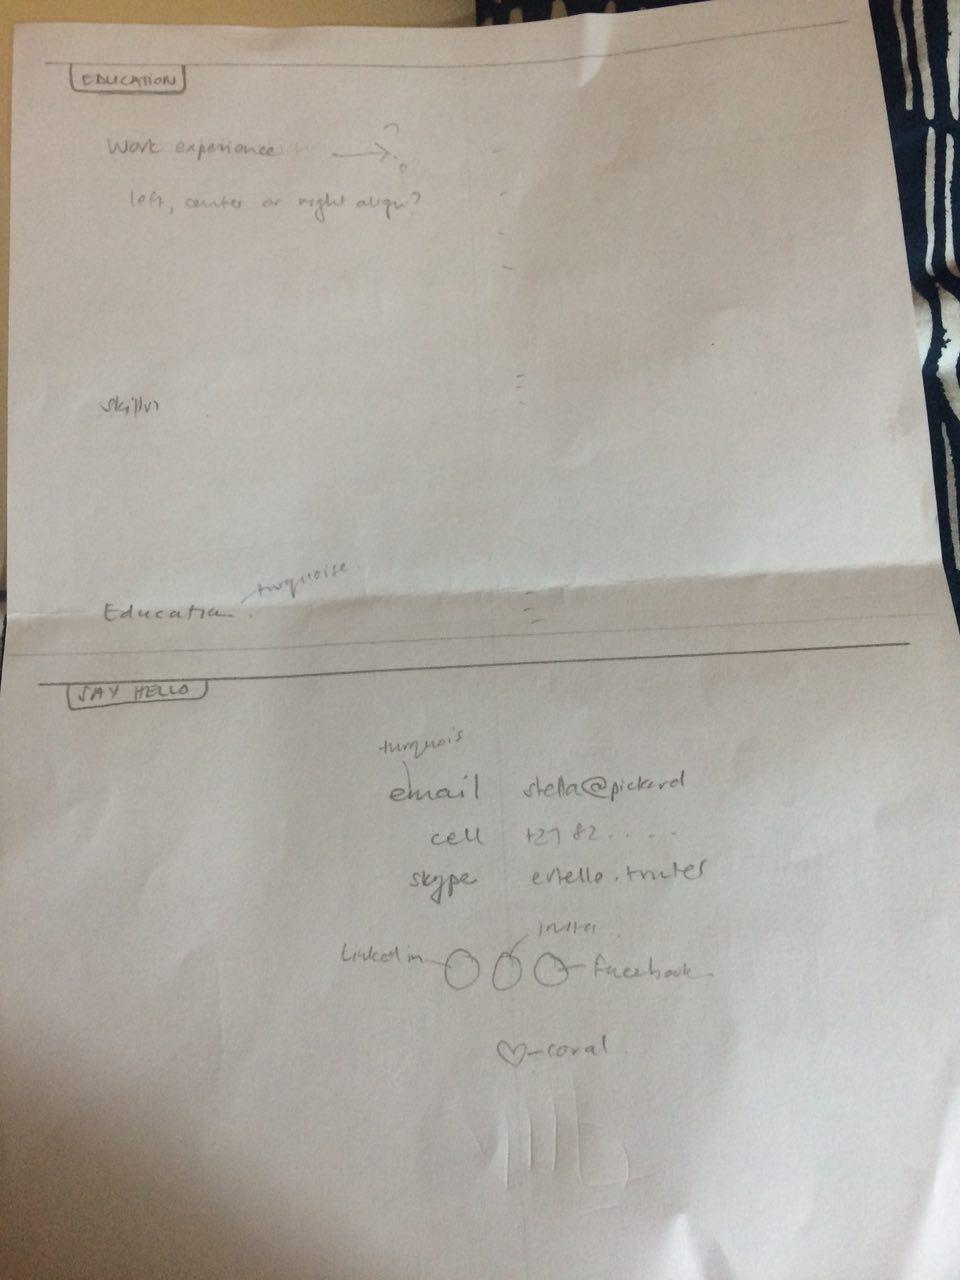 EDUCATION
Work experience → ?
left, center or right align?
skills
turquoise
Education
SAY HELLO
turquois
email stella@pickard
cell +27 82 . . . . .
skype estelle.truter
insta
Linked in facebook
♡ - coral